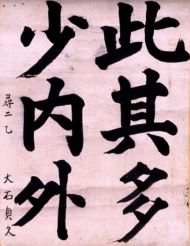 此其多
少内外
尋二乙 大石貞久